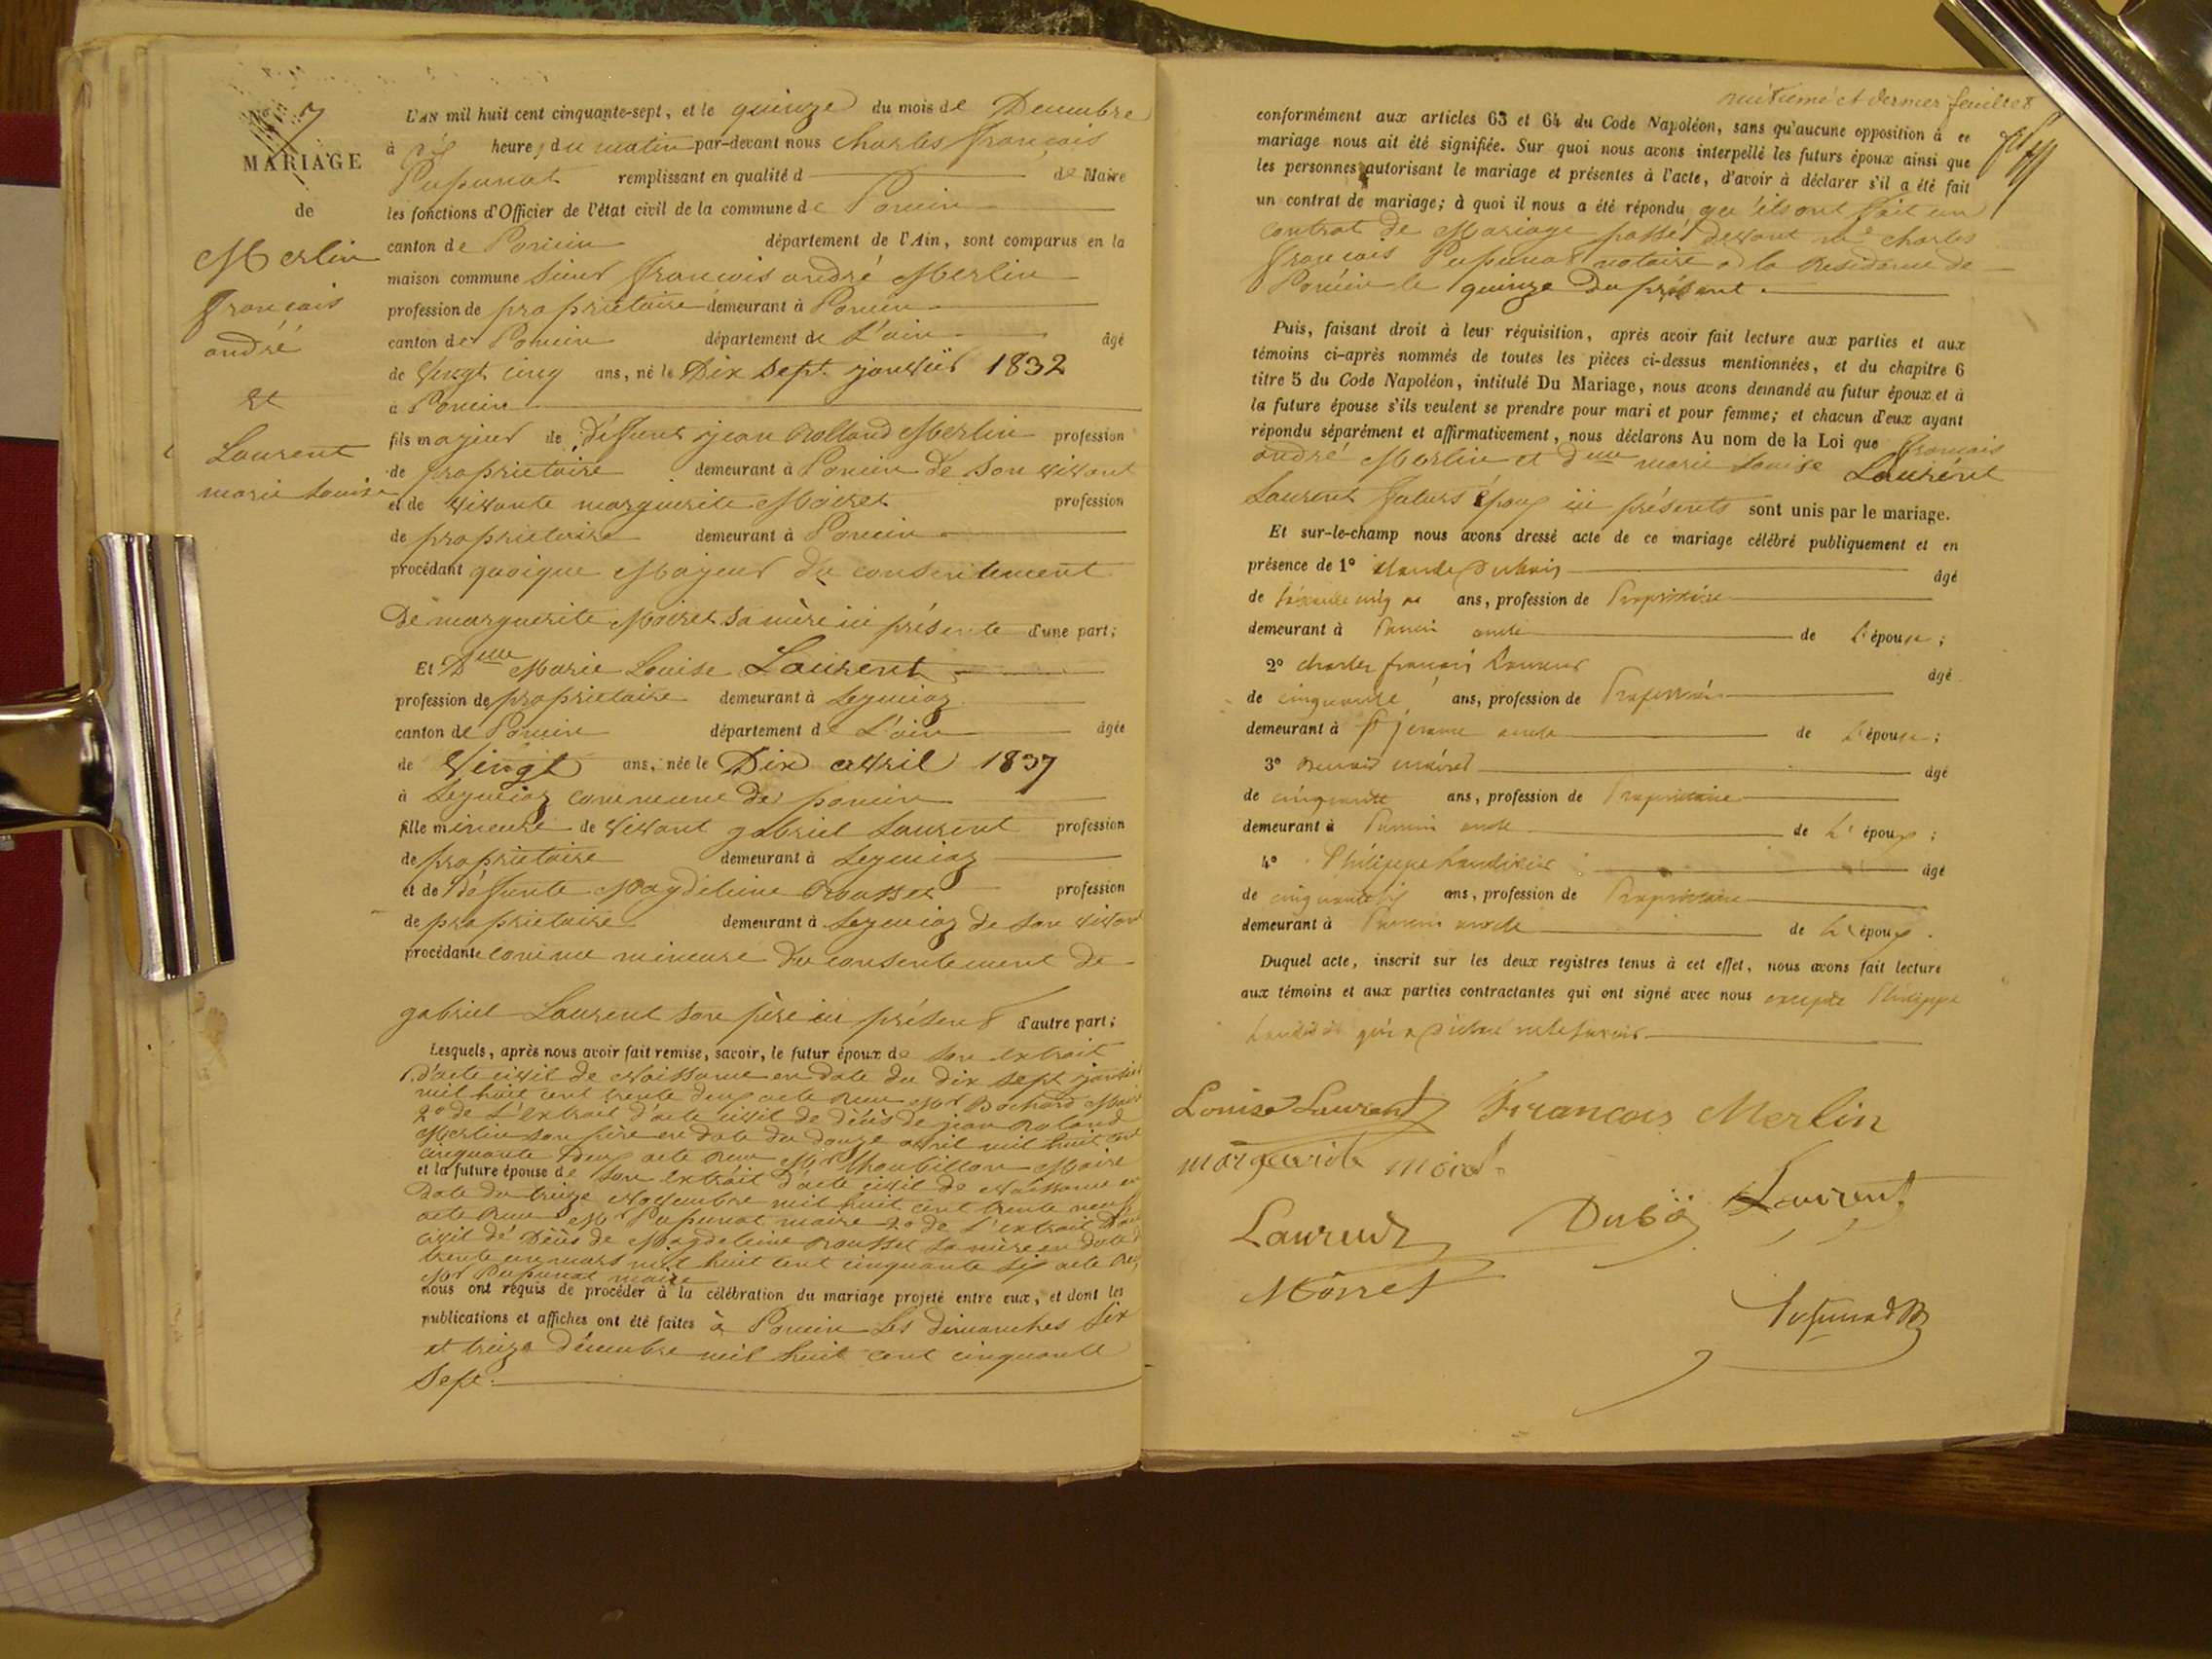 No 7
MARIAGE
de
Merlin
françois
andré
et
Laurent
marie Louise
L'AN mil huit cent cinquante-sept, et le quinze du mois de Decembre
à six heures du matin par-devant nous charles françois
Pupunat remplissant en qualité d de Maire
les fonctions d'Officier de l'état civil de la commune de Poncin
canton de Poncin département de l'Ain, sont comparus en la
maison commune sieur françois andré Merlin
profession de propriétaire demeurant à Poncin
canton de Poncin département de L'ain âgé
de vingt cinq ans, né le Dix sept janvier 1832
à Poncin
fils majeur de déffunt jean Rolland Merlin profession
de propriétaire demeurant à Poncin de son vivant
et de vivante marguerite Moiret profession
de propriétaire demeurant à Poncin
procédant quoique Majeur du consentement
De marguerite Moiret sa mère ici présente d'une part;
Et Delle Marie Louise Laurent
profession de propriétaire demeurant à Leymiaz
canton de Poncin département de L'ain âgée
de vingt ans, née le Dix avril 1837
à Leymiaz commune de poncin
fille mineure de vivant gabriel Laurent profession
de propriétaire demeurant à Leymiaz
et de déffunte Magdeleine Rousset profession
de propriétaire demeurant à Leymiaz de son vivant
procédante comme mineure du consentement de
gabriel Laurent son père ici présent d'autre part;
Lesquels, après nous avoir fait remise, savoir, le futur époux de son extrait
d'acte civil de Naissance en date du dix sept janvier
mil huit cent trente deux acte reçu Mr Bochard Maire
2o de L'extrait d'acte civil de décès de jean Roland
Merlin son père en date du douze avril mil huit cent
cinquante deux acte reçu Mr Maire
et la future épouse de son extrait d'acte civil de Naissance en
date du treize Novembre mil huit cent trente neuf
acte reçu Mr Pupunat maire 2o de L'extrait D'acte
civil de Décès de Magdeleine Rousset sa mère en date du
trente un mars mil huit cent cinquante six acte reçu
Mr Pupunat maire
nous ont requis de procéder à la célébration du mariage projeté entre eux, et dont les
publications et affiches ont été faites à Poncin Les dimanches six
et treize décembre mil huit cent cinquante
sept.
huitième et dernier feuillet
conformément aux articles 63 et 64 du Code Napoléon, sans qu'aucune opposition à ce
mariage nous ait été signifiée. Sur quoi nous avons interpellé les futurs époux ainsi que
les personnes autorisant le mariage et présentes à l'acte, d'avoir à déclarer s'il a été fait
un contrat de mariage; à quoi il nous a été répondu qu'ils ont fait un
contrat de Mariage passé devant me charles
françois Pupunat notaire a la Residence de
Poncin le quinze du présent.
Puis, faisant droit à leur réquisition, après avoir fait lecture aux parties et aux
témoins ci-après nommés de toutes les pièces ci-dessus mentionnées, et du chapitre 6
titre 5 du Code Napoléon, intitulé Du Mariage, nous avons demandé au futur époux et à
la future épouse s'ils veulent se prendre pour mari et pour femme; et chacun d'eux ayant
répondu séparément et affirmativement, nous déclarons Au nom de la Loi que françois
andré Merlin et delle marie Louise Laurent
Laurent futurs époux ici présents sont unis par le mariage.
Et sur-le-champ nous avons dressé acte de ce mariage célébré publiquement et en
présence de 1o Claude Dubois âgé
de ans, profession de Propriétaire
demeurant à Poncin oncle de l'épouse;
2o charles françois Laurent âgé
de cinquante ans, profession de
demeurant à St jerome oncle de l'épouse;
3o moiret âgé
de cinquante ans, profession de Propriétaire
demeurant à Poncin oncle de L'époux;
4o Philippe âgé
de cinquante six ans, profession de Propriétaire
demeurant à Poncin oncle de L'époux.
Duquel acte, inscrit sur les deux registres tenus à cet effet, nous avons fait lecture
aux témoins et aux parties contractantes qui ont signé avec nous excepté Philippe
qui a déclaré ne le savoir
Louise Laurent François Merlin
marguerite moiret
Laurent Duboi Laurent
Moiret
Pupunat